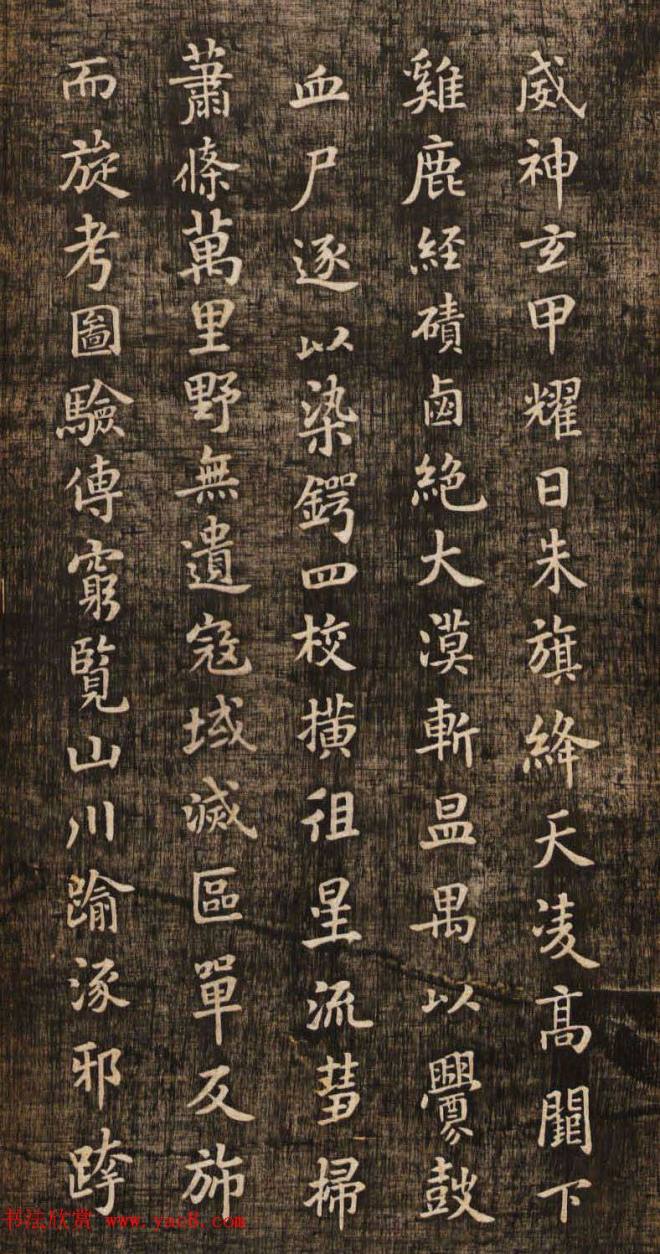 威神玄甲耀日朱旗絳天凌高闕下
雞鹿経磧鹵絶大漠斬昷禺以釁鼓
血尸逐以染鍔四校橫徂星流彗掃
蕭條萬里野無遺寇域滅區單反旆
而旋考圖驗傳窮覽山川踰涿邪跨
书法欣赏 www.yac8.com